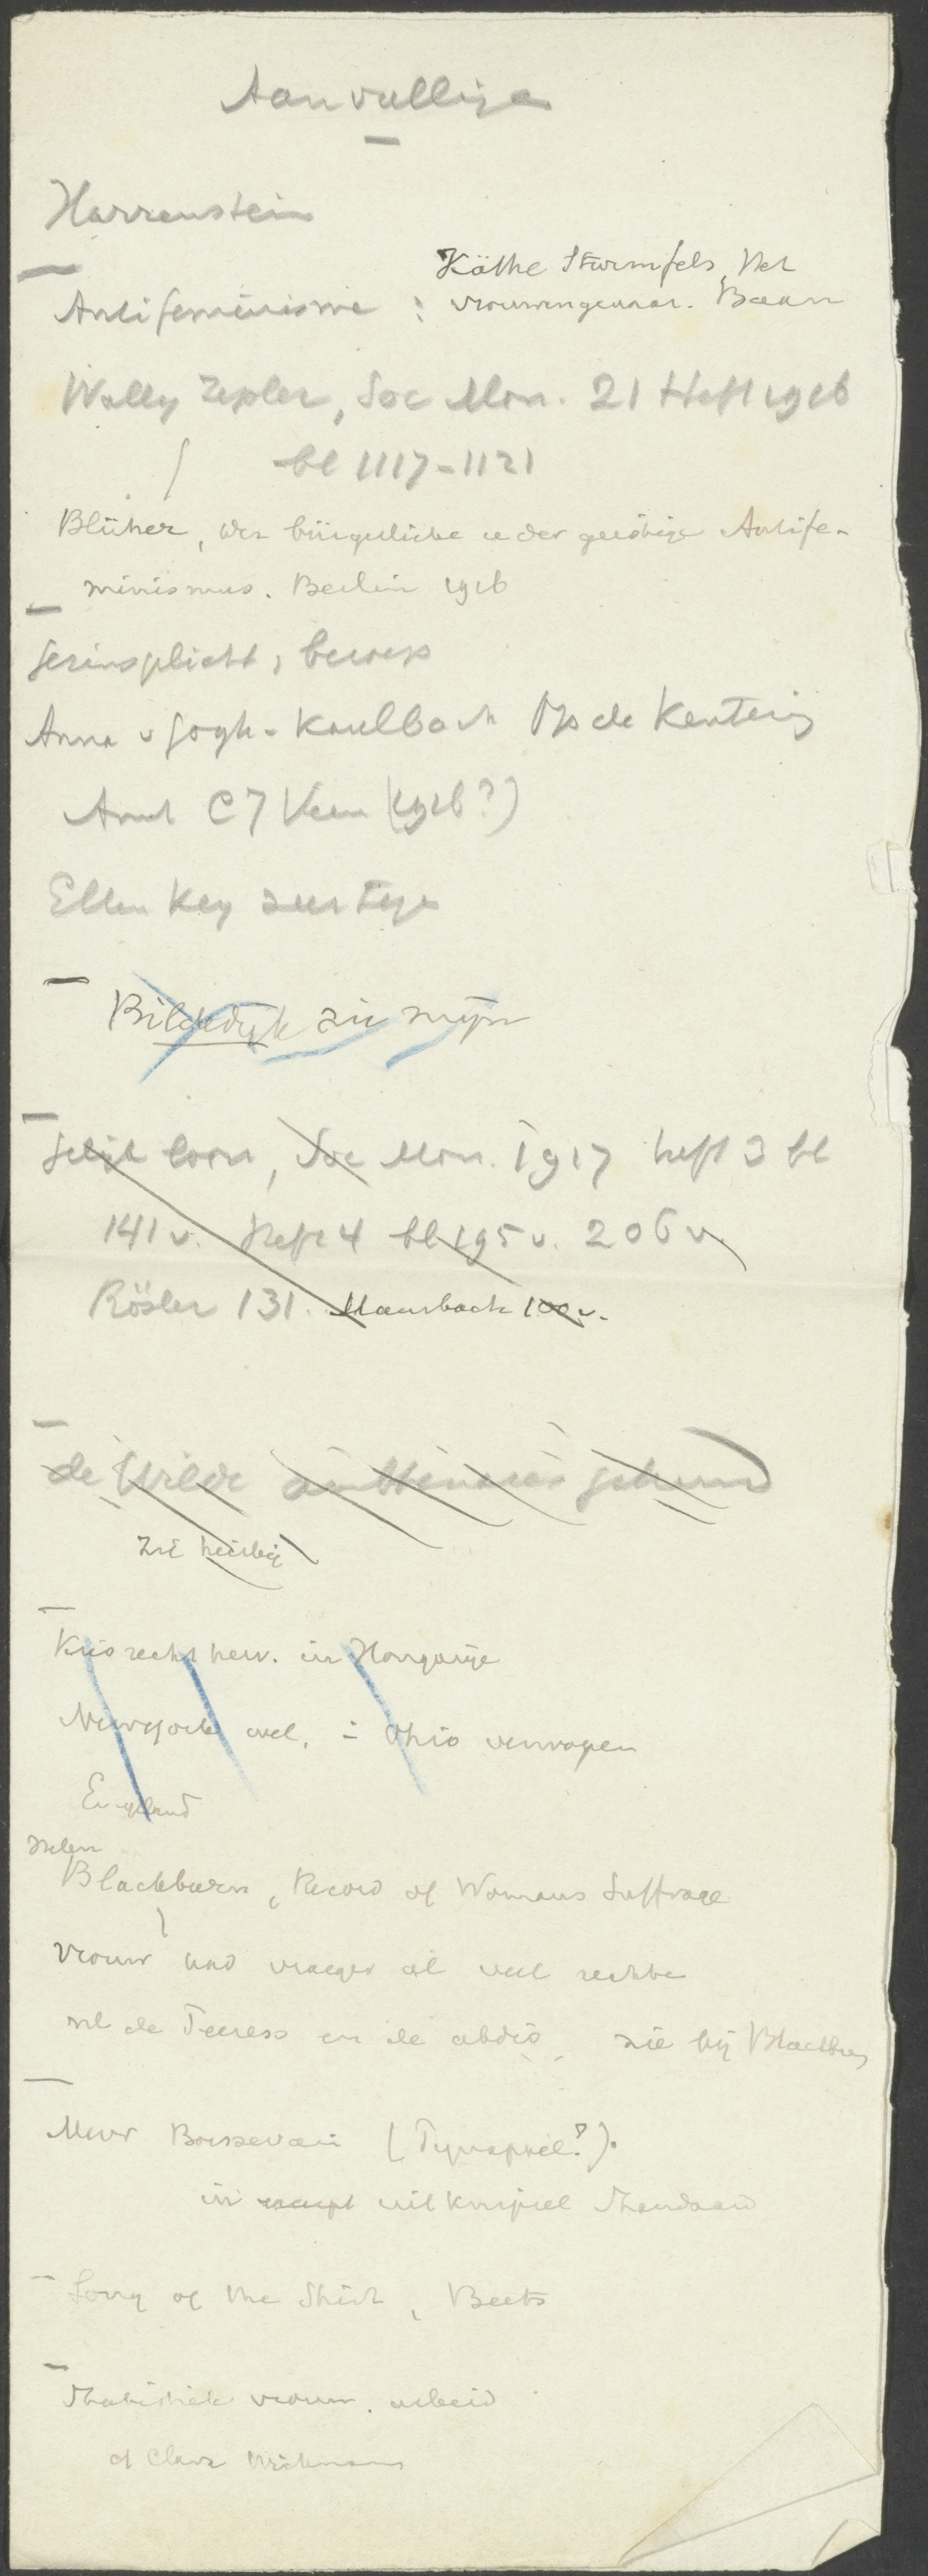 Aanvullingen
Harrenstein
Käthe Sturmfels, Het
Antifeminisme : vrouwengevaar. Baarn
Wally Zepler, Soc Mon. 21 Heft 1916
bl 1117-1121
Blüher, der bürgerliche u der geistige Antife-
minismus. Berlin 1916
Gezinsplicht, beroep
Anna v Gogh-Kaulbach Op de Kentering
Amst C 7 Veen (1916?)
Ellen Key zeer tegen
Bilderdijk zie mijn
Gelijk loon, Soc Mon. 1917 heft 3 bl
141 v. Heft 4 bl 195 v. 206 v.
Rösler 131. Mausbach 100 v.
de Wilde
zie hierbij
Kiesrecht verw. in Hongarije
Newyork Ohio verworpen
Engeland
Helen
Blackburn, Record of Womans Suffrage
vrouw had vroeger al veel rechten
nl de Peeress en de abdis, zie bij Blackburn
Mevr Boissevain (Pijnappel?).
in uitknipsel Standaard
Song of the Shirt, Beets
Statistiek vrouw. arbeid
cf Clara Wichmann